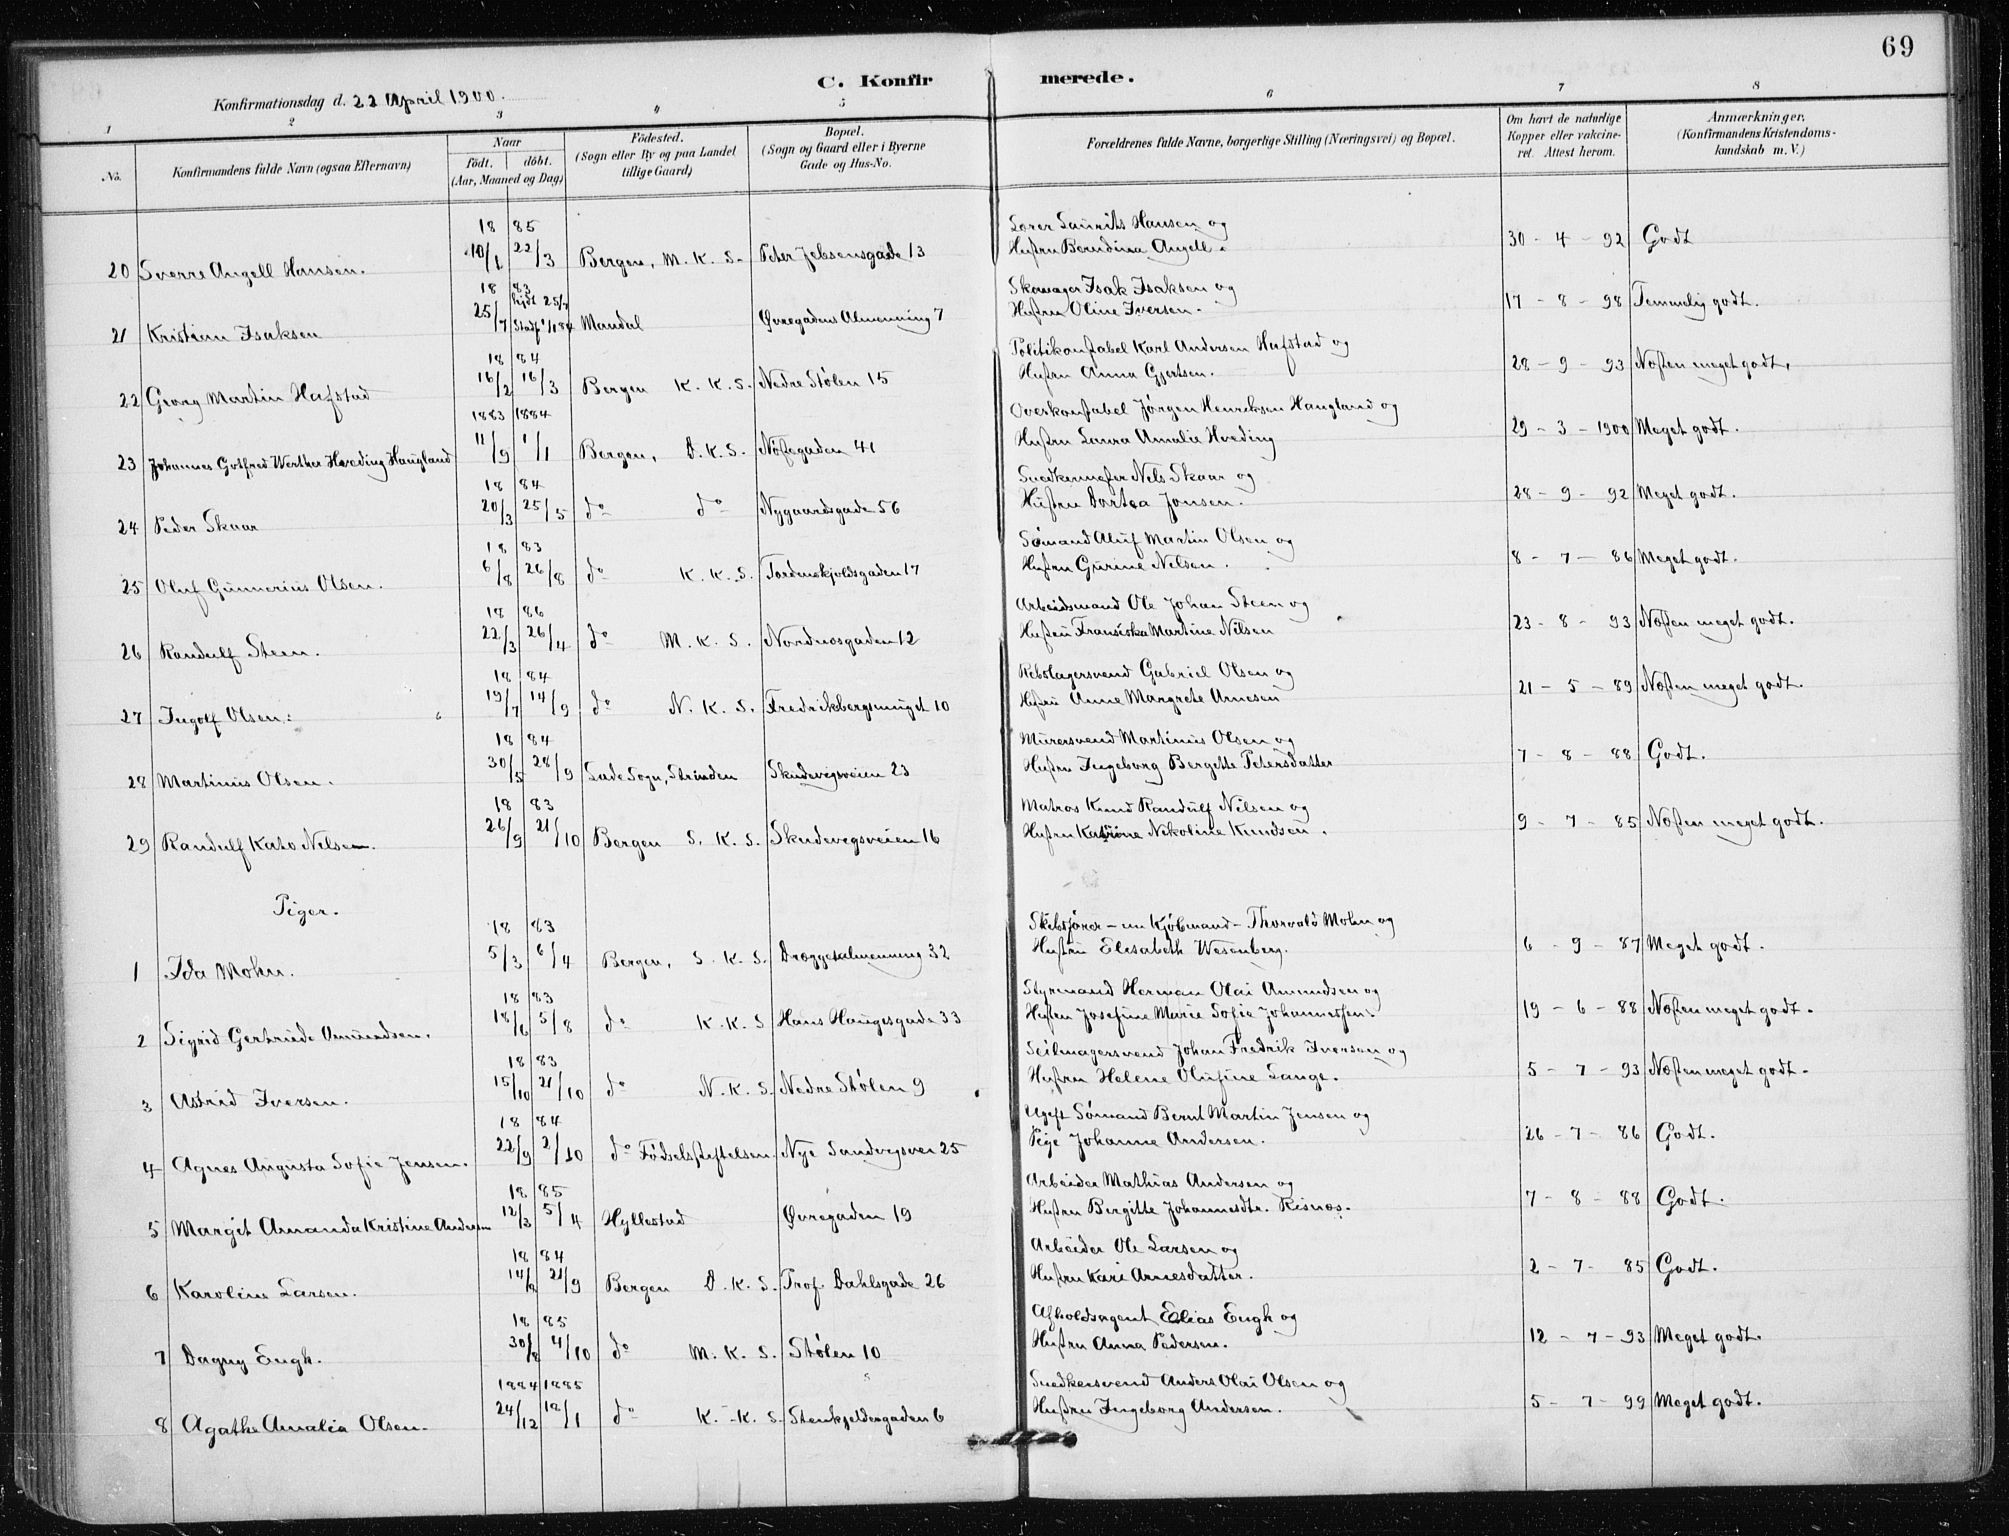 69
C. Konfirmerede.
Konfirmationsdag d. 22 April 1900.
1 2 3 4 5 6 7 8
No. Konfirmandens fulde Navn (ogsaa Efternavn) Naar født. døbt. (Aar, Maaned og Dag) Fødested. (Sogn eller By og paa Landet tillige Gaard) Bopæl. (Sogn og Gaard eller i Byerne Gade og Hus-No. Forældrenes fulde Navne, borgerlige Stilling (Næringsvei) og Bopæl. Om havt de naturlige Kopper eller vakcineret. Attest herom. Anmærkninger. (Konfirmandens Kristendomskundskab m. V.)
18 85 Laurits Hansen og
20 Sverre Angell Hansen. 10/1 22/3 Bergen, M. K. S. Peter Jebsensgade 13 Hustru Berndina Angell. 30 - 4 - 92 Godt
18 83 Skomager Isak Isaksen og
21 Kristian Isaksen 25/7 Mandal Øvregadens Almenning 7 Hustru Oline Iversen. 17 - 8 - 98 Temmelig godt.
18 84 Politikonstabel Karl Andersen Hafstad og
22 Georg Martin Hafstad 16/2 16/3 Bergen K. K. S. Nedre Stølen 15 Hustru Anna Gjertsen. 28 - 9 - 93 Næsten meget godt,
1883 1884 Overkonstabel Jørgen Henriksen Haugland og
23 Johannes Gotfred Werther Hveding Haugland 11/9 1/1 Bergen, D. K. S. Nøstegaden 41 Hustru Laura Amalie Hveding 29 - 3 - 1900 Meget godt.
18 84 Snedkermester Nels Skaar og
24 Peder Skaar 20/3 25/5 do do Nygaardsgade 56 Hustru Dortea Jonsen. 28 - 9 - 92 Meget godt.
18 83 Sømand Aluf Martin Olsen og
25 Oluf Gunnerius Olsen. 6/8 26/8 do K. K. S. Tordenskjoldsgaden 17 Hustru Gurine Nelsen. 8 - 7 - 86 Meget godt.
18 86 Arbeidsmand Ole Johan Steen og
26 Randulf Steen. 22/3 26/4 do M. K. S. Nordnæsgaden 12 Hustru Fransiska Martine Nilsen 23 - 8 - 93 Næsten meget godt.
18 84 Rebslagersvend Gabriel Olsen og
27 Ingolf Olsen. 19/7 14/9 do N. K. S. Fredriksbergsmuget 10 Hustru Anne Margrete Arnesen 21 - 5 - 89 Næsten meget godt.
18 84 Murersvend Martinus Olsen og
28 Martinus Olsen. 30/5 28/9 Lade Sogn, Strinden Skudevigsveien 23 Hustru Ingeborg Bergitte Petersdatter 7 - 8 - 88 Godt.
18 83 Matros Knud Randulf Nilsen og
29 Randulf Kato Nelsen. 26/9 21/10 Bergen S. K. S. Skudevigsveien 16 Hustru Katrine Nikoline Knudsen. 9 - 7 - 85 Næsten meget godt.
Piger.
18 83 Skibsfører - nu Kjøbmand - Thorvald Mohn og
1 Ida Mohn. 5/3 6/4 Bergen, S. K. S. Dreggesalmenning 32 Hustru Elisabeth Wesenberg. 6 - 9 - 87 Meget godt.
18 83 Styrmand Herman Olai Amundsen og
2 Sigrid Gertrude Amundsen. 18/6 5/8 do K. K. S Hans Haugesgade 33 Hustru Josefine Marie Sofie Johannessen. 19 - 6 - 88 Næsten meget godt.
18 83 Seilmagersvend Johan Fredrik Iversen og
3 Astrid Iversen. 15/10 21/10 do N. K. S. Nedre Stølen 9 Hustru Helene Olufine Lange. 5 - 7 - 93 Næsten meget godt.
18 84 Ugift Sømand Bernt Martin Jensen og
4 Agnes Augusta Sofie Jensen. 22/9 2/10 do Fødselsstiftelsen. Nye Sandvigsvei 25 Pige Johanne Andersen. 26 - 7 - 86 Godt.
18 85 Arbeider Mathias Andersen og
5 Margit Amanda Kristine Andersen 12/3 5/4 Hyllestad Øvregaden 19 Hustru Bergitte Johannesdtr. Risnæs. 7 - 8 - 88 Godt.
18 84 Arbeider Ole Larsen og
6 Karoline Larsen. 21/9 Bergen D. K. S. Prof. Dahlsgade 26 Hustru Kari Arnesdatter. 2 - 7 - 85 Godt.
18 85 Afholdsagent Elias Engh og
7 Dagny Engh. 30/8 4/10 do M. K. S. Stølen 10 Hustru Anna Pedersen. 12 - 7 - 93 Meget godt.
1884 1885 Snedkersvend Anders Olai Olsen og
8 Agathe Amalia Olsen. 24/12 18/1 do K. K. S. Stenkjeldergaden 6 Hustru Ingeborg Andersen. 5 - 7 - 99 Meget godt.